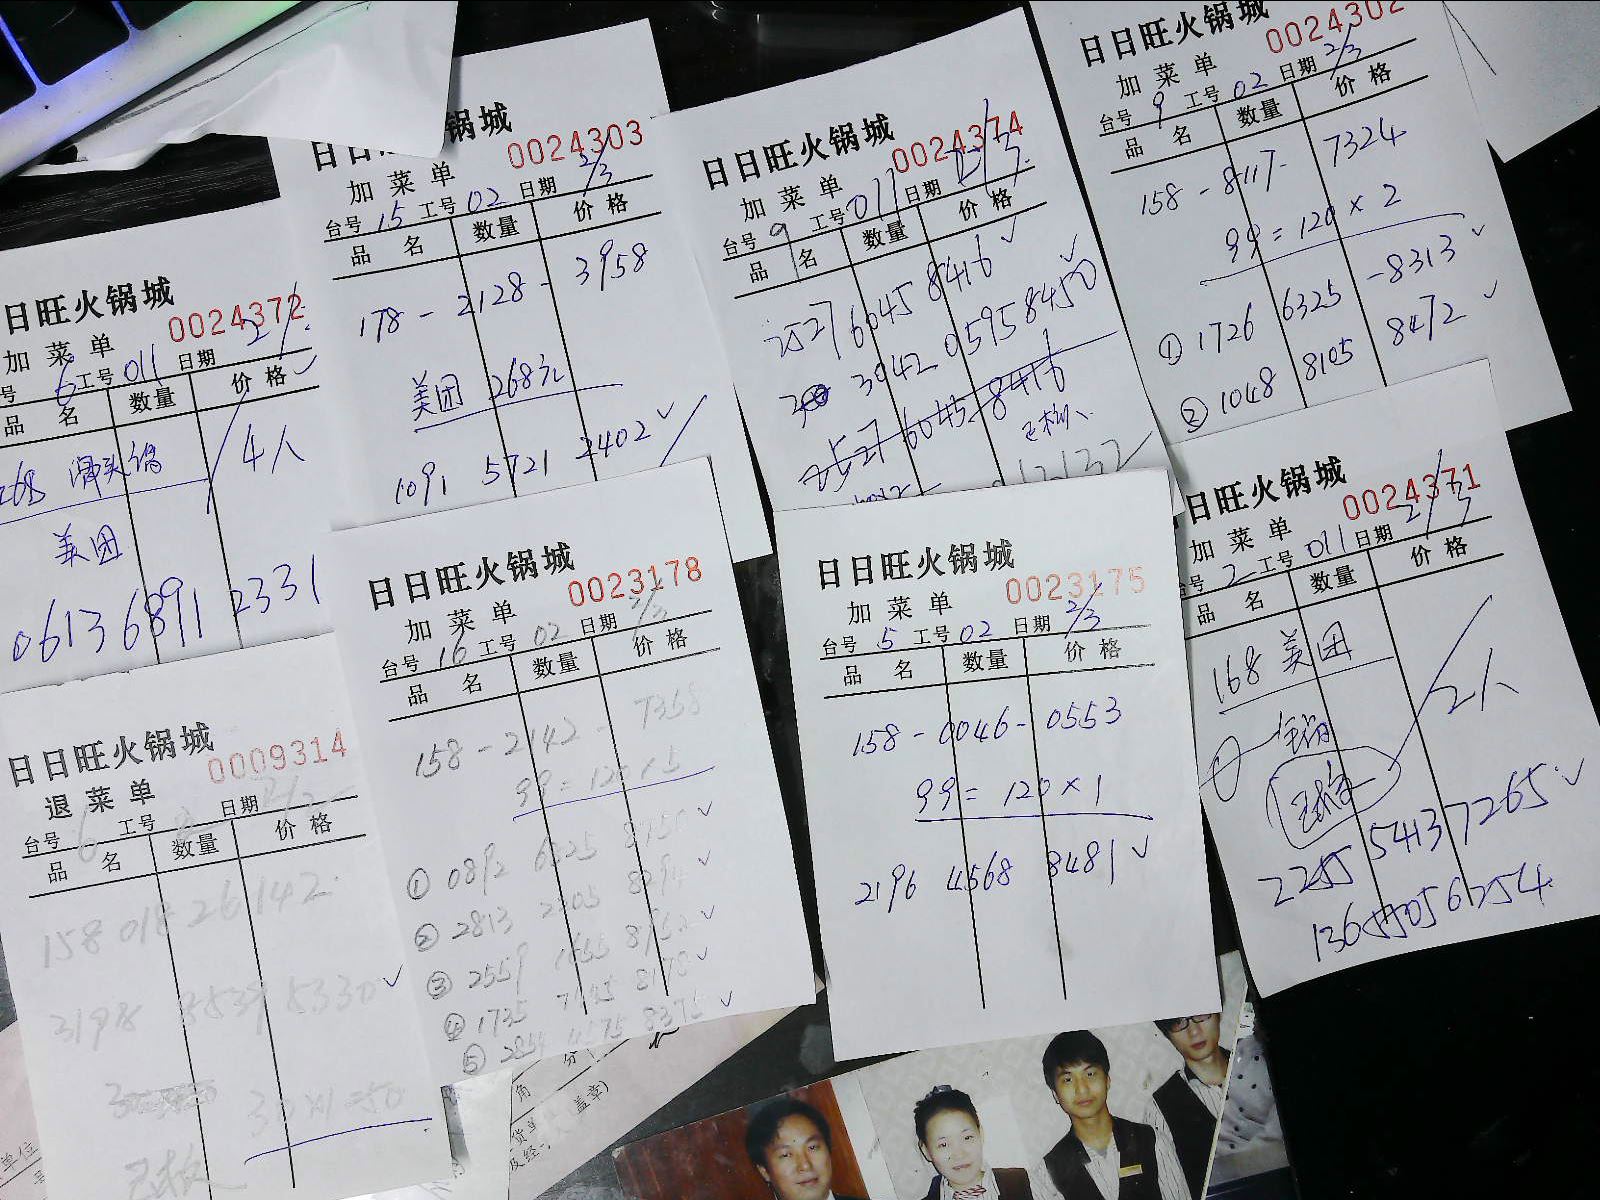 日旺火锅城
0024372
加菜单
号 6 工号 011 日期 2/
品 名 数量 价格
268 骨头锅 4人
美团
0613 6891 2331
日日 锅城
0024303
加菜单
台号 15 工号 02 日期 2/3
品 名 数量 价格
178-2128-3958
美团 268元
1091 5721 2402
日日旺火锅城
0024374
加菜单
台号 9 工号 011 日期 2/3
品 名 数量 价格
2527 6045 8416
3042 0595 8450
2527 6045 8416
日日旺火锅城
0024302
加菜单
台号 9 工号 02 日期 2/3
品 名 数量 价格
158-8117-7324
99=120×2
① 1726 6325 -8313
② 1048 8105 8472
日日旺火锅城
0009314
退菜单
台号 6 工号 日期
品 名 数量 价格
158 018 26142
3198 8339 8330
日日旺火锅城
0023178
加菜单
台号 16 工号 02 日期 2/3
品 名 数量 价格
158-2142-7358
99=120×5
① 0892 6325 8150
② 2813 2305 8294
③ 2559 1655 8952
④ 1735 7445 8178
⑤ 2854 4575 8375
日日旺火锅城
0023175
加菜单
台号 5 工号 02 日期 2/3
品 名 数量 价格
158-0046-0553
99=120×1
2196 4568 8481
日旺火锅城
0024371
加菜单
台号 2 工号 011 日期 2/3
品 名 数量 价格
168 美团
2人
2255 5413 7265
角 分
盖章)
单位